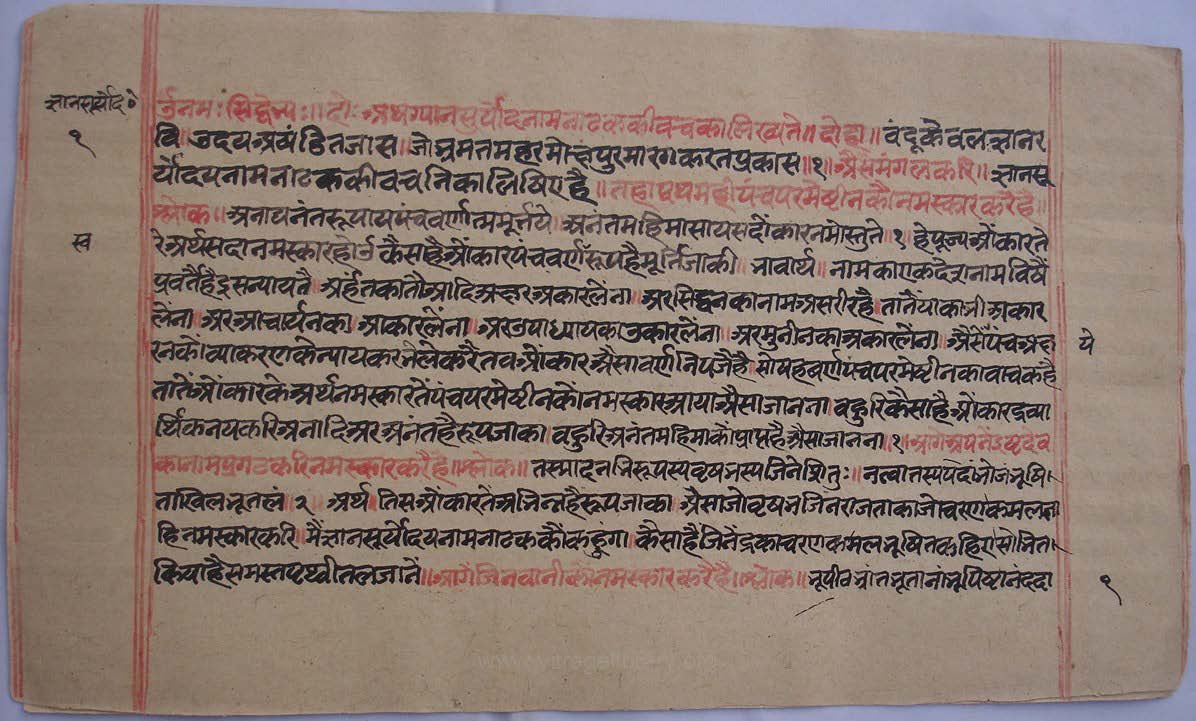 ज्ञानसूर्योद॰
१
र्उनमः सिद्धेभ्यः॥ दो॰ अथग्यानसूर्योदनामनाटककीवचकालिख्यते॥ दोहा॥ वंदूकेवलज्ञानर
वि उदयअखंडितजास॥ जोभ्रमतमहरमोक्षपुरमारगकरतप्रकास॥१॥ अैसेमंगलकरि॥ ज्ञानसू
र्योदयनामनाटककीवचनिकालिषिएहै॥ तहाप्रथमहीपंचपरमेष्टीनकौनमस्कारकरैहै॥
श्लोक॥ अनाद्यनंतरूपायपंचवर्णात्ममूर्त्तये अनंतमहिमाप्तायसदोंकारनमोस्तुते १ हेपूज्यओंकारते
रेअर्थसदानमस्कारहोउ कैसाहैओंकारपंचवर्णरूपहैमूर्तिजाकी भावार्थ॥ नामकाएकदेशनामविषैं
प्रवर्तैहैइसन्यायतै अर्हंतकातौआदिअक्षरअकारलेना॥ अरसिद्धनकानामअसरीरहै तातैयाकाभीअकार
लेंना॥ अरआचार्यनका आकारलेंना॥ अरउपाध्यायकाउकारलेंना॥ अरमुनीनकामकारलेंना॥ अैसेंपंचअक्ष
रनकोंव्याकरणकेन्यायकरभेलेकरैतवओंकारअैसावर्णनिपजैहै सोयहवर्णपंचपरमेष्टीनकावाचकहै
तातेंओंकारकेअर्थनमस्कारतेंपंचपरमेष्टीनकोंनमस्कारआयाअैसाजानना॥ वहुरिकैसाहैओंकारद्रव्या
र्थिकनयकरिअनादिअरअनंतहैरूपजाका॥ वहुरिअनंतमहिमाकोंप्राप्तहैअैसाजानना॥१॥ आगेअपनेंइष्टदेव
कानामप्रगटकरिनमस्कारकरैहै॥ श्लोक॥ तस्मादभिन्नरूपस्यवृषभस्यजिनेशितुः॥ नत्वातस्यपदांभोजंभूषि
ताखिलभूतलं॥२॥ अर्थ॥ तिसओंकारतेंअभिन्नहैरूपजाका॥ अैसाजोवृषभजिनराजताकाजोचरणकमलता
हिनमस्कारकरि॥ मैंज्ञानसूर्योदयनामनाटककौंकहूंगा॥ कैसाहैजिनेंद्रकाचरणकमलभूषितकहिएसोभित
कियाहैसमस्तपृथ्वीतलजानें॥ आगेंजिनवानीकोंनमस्कारकरैहै॥ श्लोक॥ भूपीठभ्रांतभूतानांभूयिष्टानंददा
स्व
ये
१